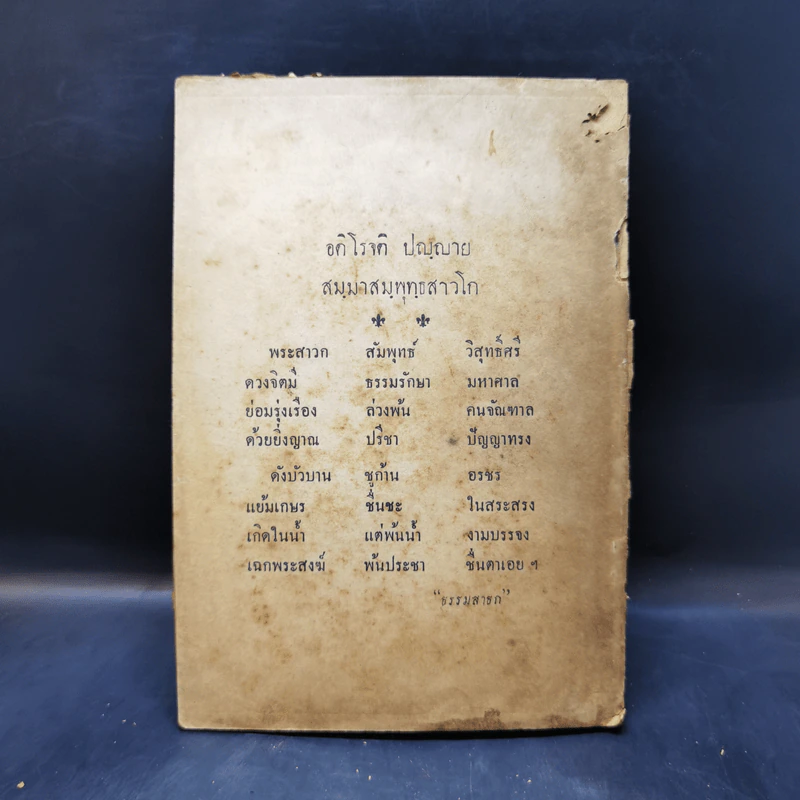 อติโรจติ ปญฺญาย
สมฺมาสมฺพุทฺธสาวโก
พระสาวก สัมพุทธ์ วิสุทธิ์ศรี
ดวงจิตมี ธรรมรักษา มหาศาล
ย่อมรุ่งเรือง ล่วงพ้น คนจัณฑาล
ด้วยยิ่งญาณ ปรีชา ปัญญาทรง
ดังบัวบาน ชูก้าน อรชร
แย้มเกษร ชื่นชะ ในสระสรง
เกิดในน้ำ แต่พ้นน้ำ งามบรรจง
เฉกพระสงฆ์ พ้นประชา ชื่นตาเอย ฯ
"ธรรมสาธก"